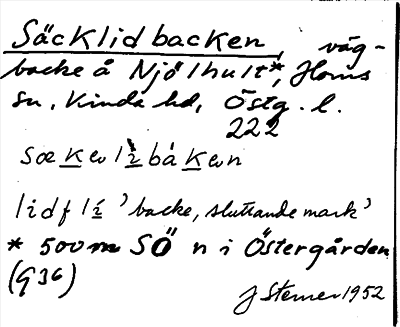 Säcklidbacken, väg-
backe å Njölhult*, Horns
sn, Kinda hd, Östg. l.
222
sœkeulibåkeun
lid f li 'backe, sluttande mark'
* 500 m SÖ n i Östergården
(936)
J Sterner 1952